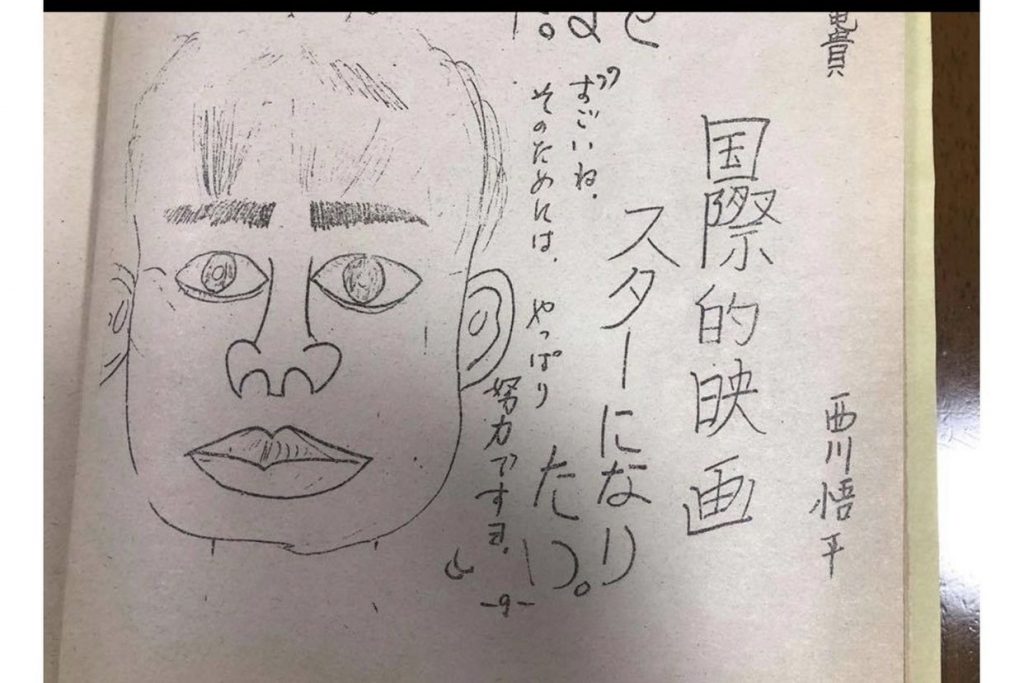 貴
西川悟平
国際的映画
スターになり
たい。
すごいね.
そのためには、やっぱり
努力ですヨ.
-9-